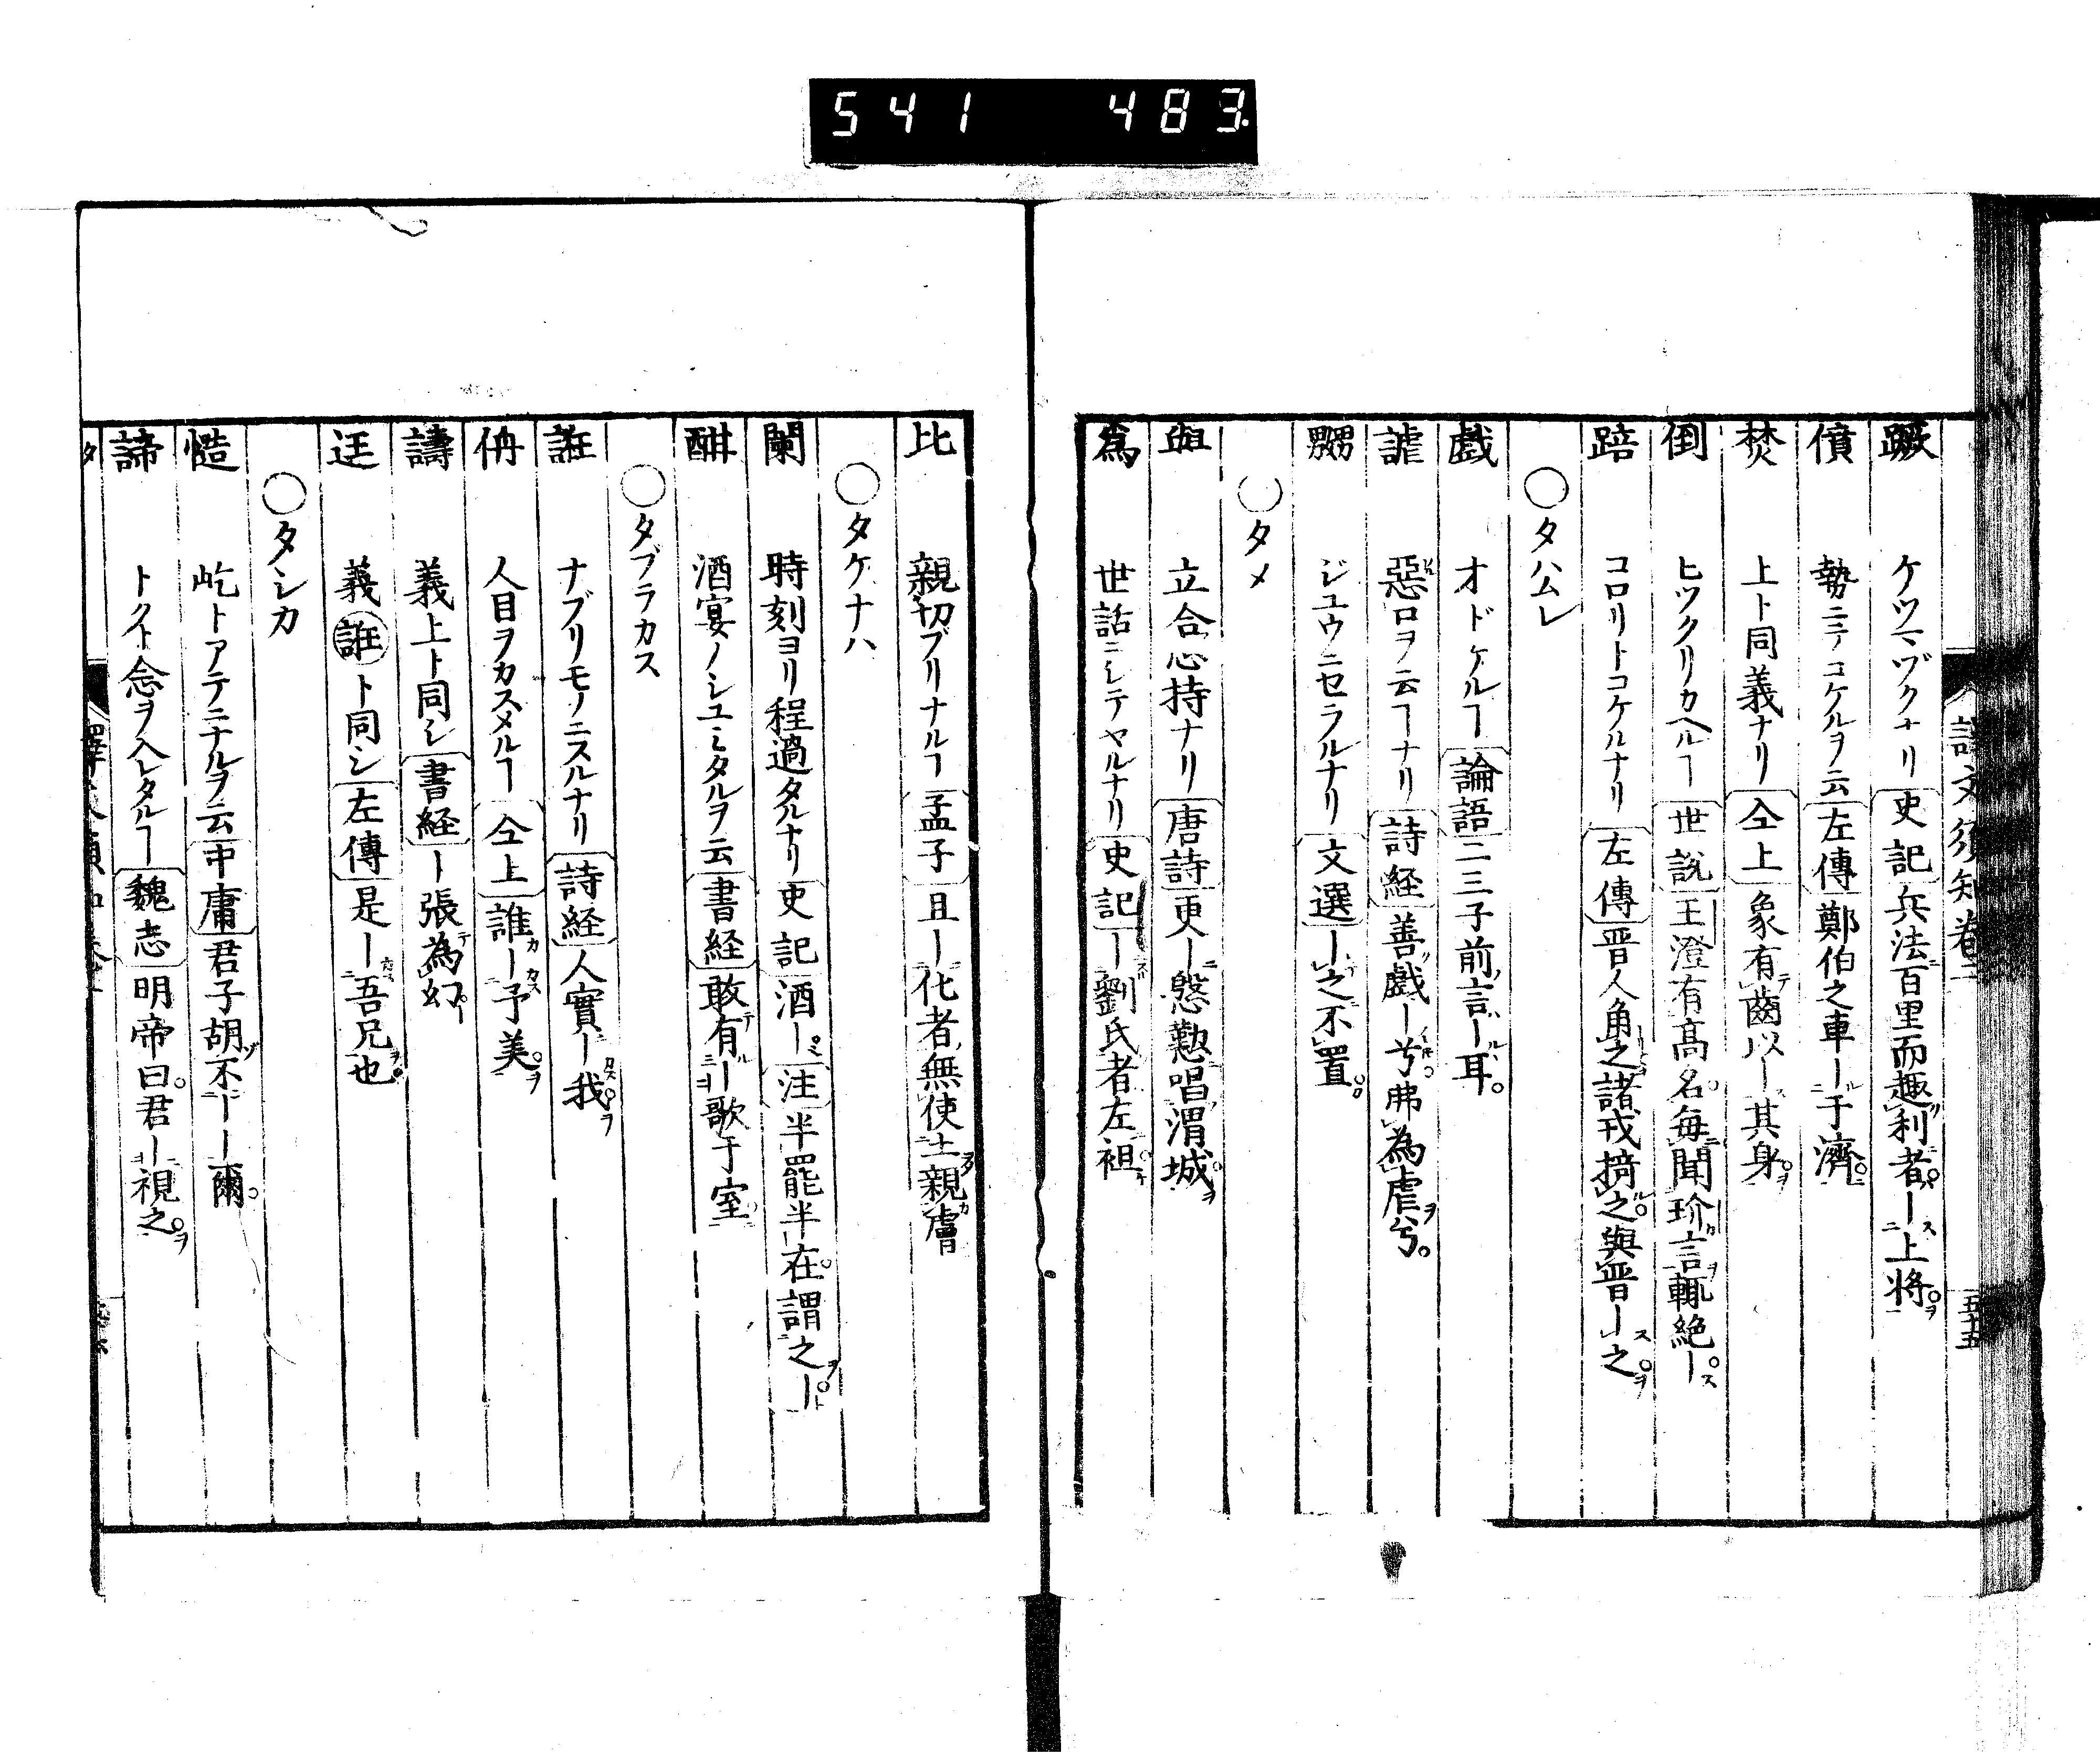 541 483.
譯文須知卷二
五十五
蹶 ケツマヅクナリ 史記 兵法百里而趣利者ー上將
僨 勢ニテコケルヲ云 左傳 鄭伯之車ー于濟
焚 上ト同義ナリ 仝上 象有齒以ー其身
倒 ヒツクリカヘルヿ 世説 王澄有高名毎聞玠言輒絶ー
踣 コロリトコケルナリ 左傳 晋人角之諸戎掎之與晋ー之
○タハムレ
戯 オドケルヿ 論語 二三子前言ー耳
謔 惡口ヲ云ヿナリ 詩経 善戯ー兮弗為虐兮
嬲 ジユウニセラルナリ 文選 ー之不置
○タメ
與 立合心持ナリ 唐詩 更ー慇懃唱渭城
為 世話ニシテヤルナリ 史記 ー劉氏者左袒
比 親切ブリナルヿ 孟子 且ー化者無使土親膚
○タケナハ
闌 時刻ヨリ程過タルナリ 史記 酒ー 注 半罷半在謂之ー
酣 酒宴ノシユミタルヲ云 書経 敢有ー歌于室
○タブラカス
誑 ナブリモノニスルナリ 詩経 人實ー我
侜 人目ヲカスメルヿ 仝上 誰ー予美
譸 義上ト同シ 書経 ー張為幻
迋 義誑ト同シ 左傳 是ー吾兄也
○タシカ
慥 屹トアテニナルヲ云 中庸 君子胡不ーー爾
諦 トクト念ヲ入レタルヿ 魏志 明帝曰君ー視之
タ